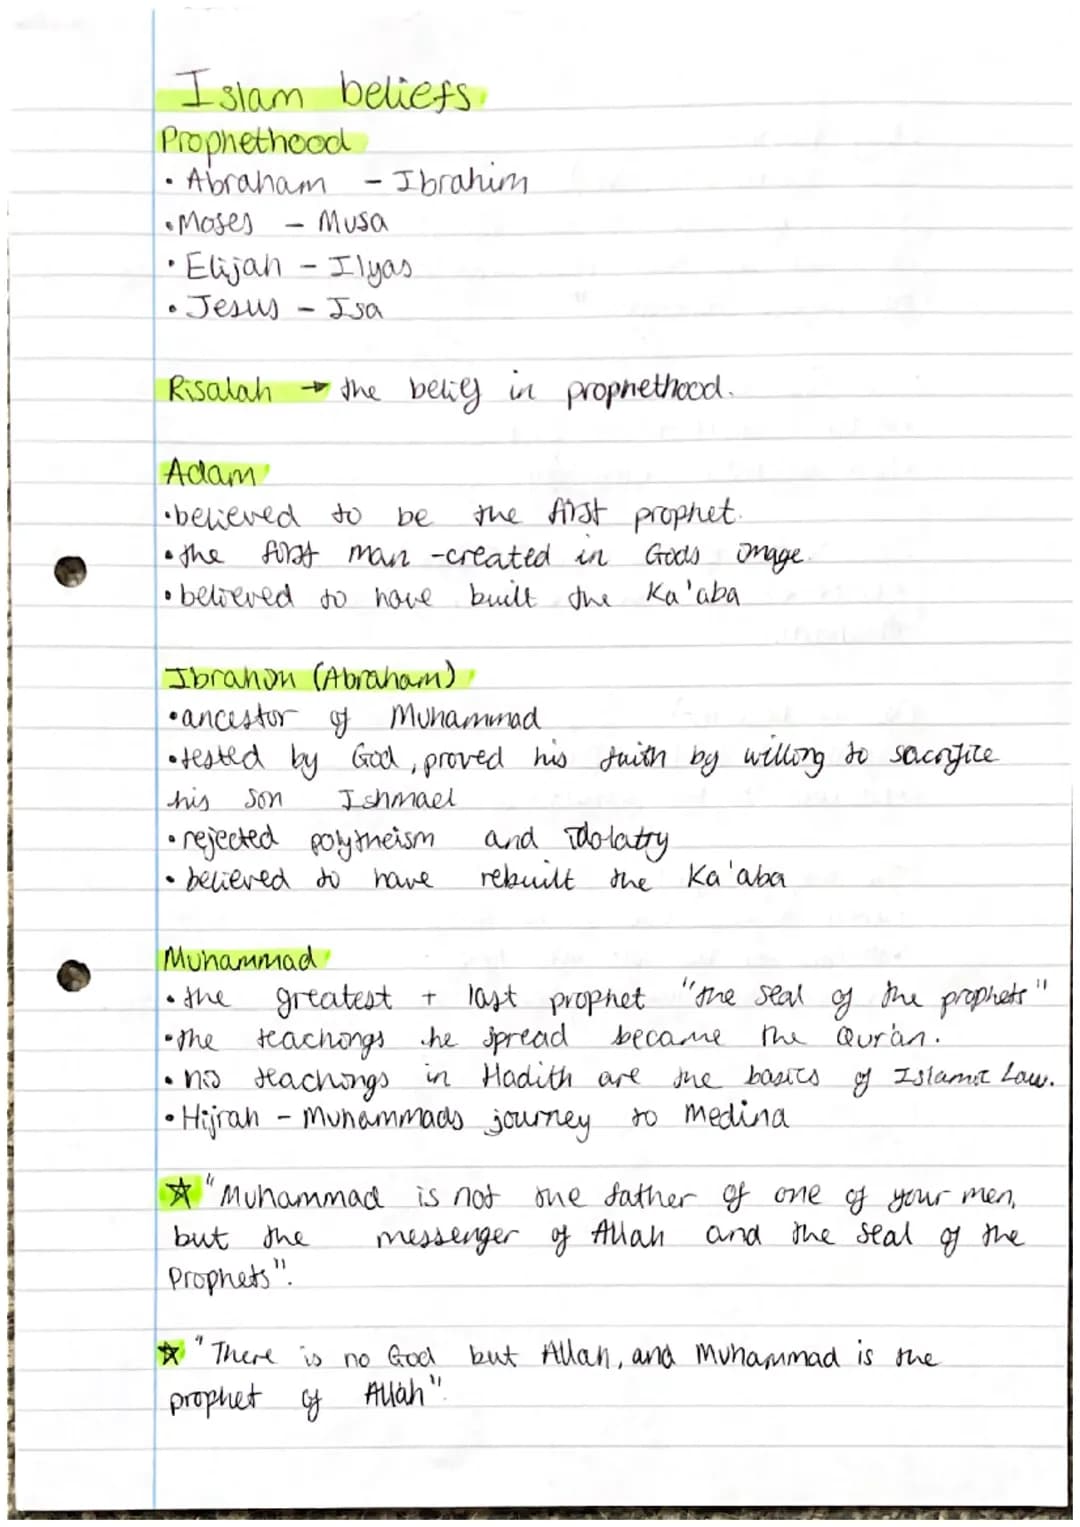 Islam beliefs
Prophethood
• Abraham - Ibrahim
• Moses - Musa
• Elijah - Ilyas
• Jesus - Isa
Risalah → the belief in prophethood.
Adam
• believed to be the first prophet.
• the first man - created in Gods image.
• believed to have built the Ka'aba
Ibrahim (Abraham)
• ancestor of Muhammad
• tested by God, proved his faith by willing to sacrifice
his son Ishmael
• rejected polytheism and idolatry
• believed to have rebuilt the Ka'aba
Muhammad
• the greatest + last prophet "the seal of the prophets"
• the teachings he spread became the Qur'an.
• his teachings in Hadith are the basics of Islamic Law.
• Hijrah - Muhammads journey to Medina
☆ "Muhammad is not the father of one of your men,
but the messenger of Allah and the seal of the
Prophets".
☆ "There is no God but Allah, and Muhammad is the
prophet of Allah".